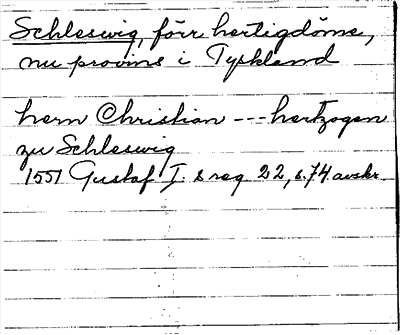 Schleswig, förr hertigdöme,
nu provins i Tyskland
hern Christian --- hertzogen
zu Schleswig
1551 Gustaf I. s reg 22, s. 74 avskr.